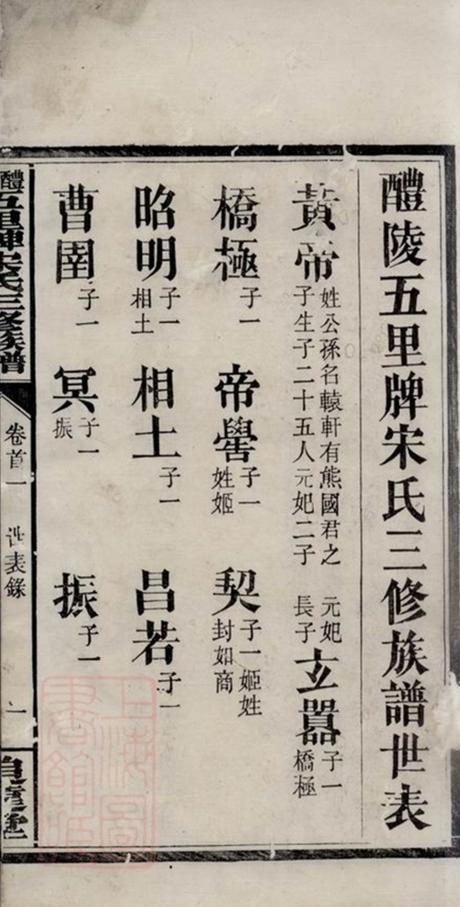 醴陵五里牌宋氏三修族譜世表
黃帝 姓公孫名轅軒有熊國君之
子生子二十五人元妃二子 元妃
長子 玄囂 子一
橋極
橋極 子一 帝嚳 子一
姓姬 契 子一姬姓
封如商
昭明 子一
相土 相土 子一 昌若 子一
曹圉 子一 冥 子一
振 振 子一
醴五里牌宋氏三修族譜
卷首一 世表錄 一
上海圖書館藏